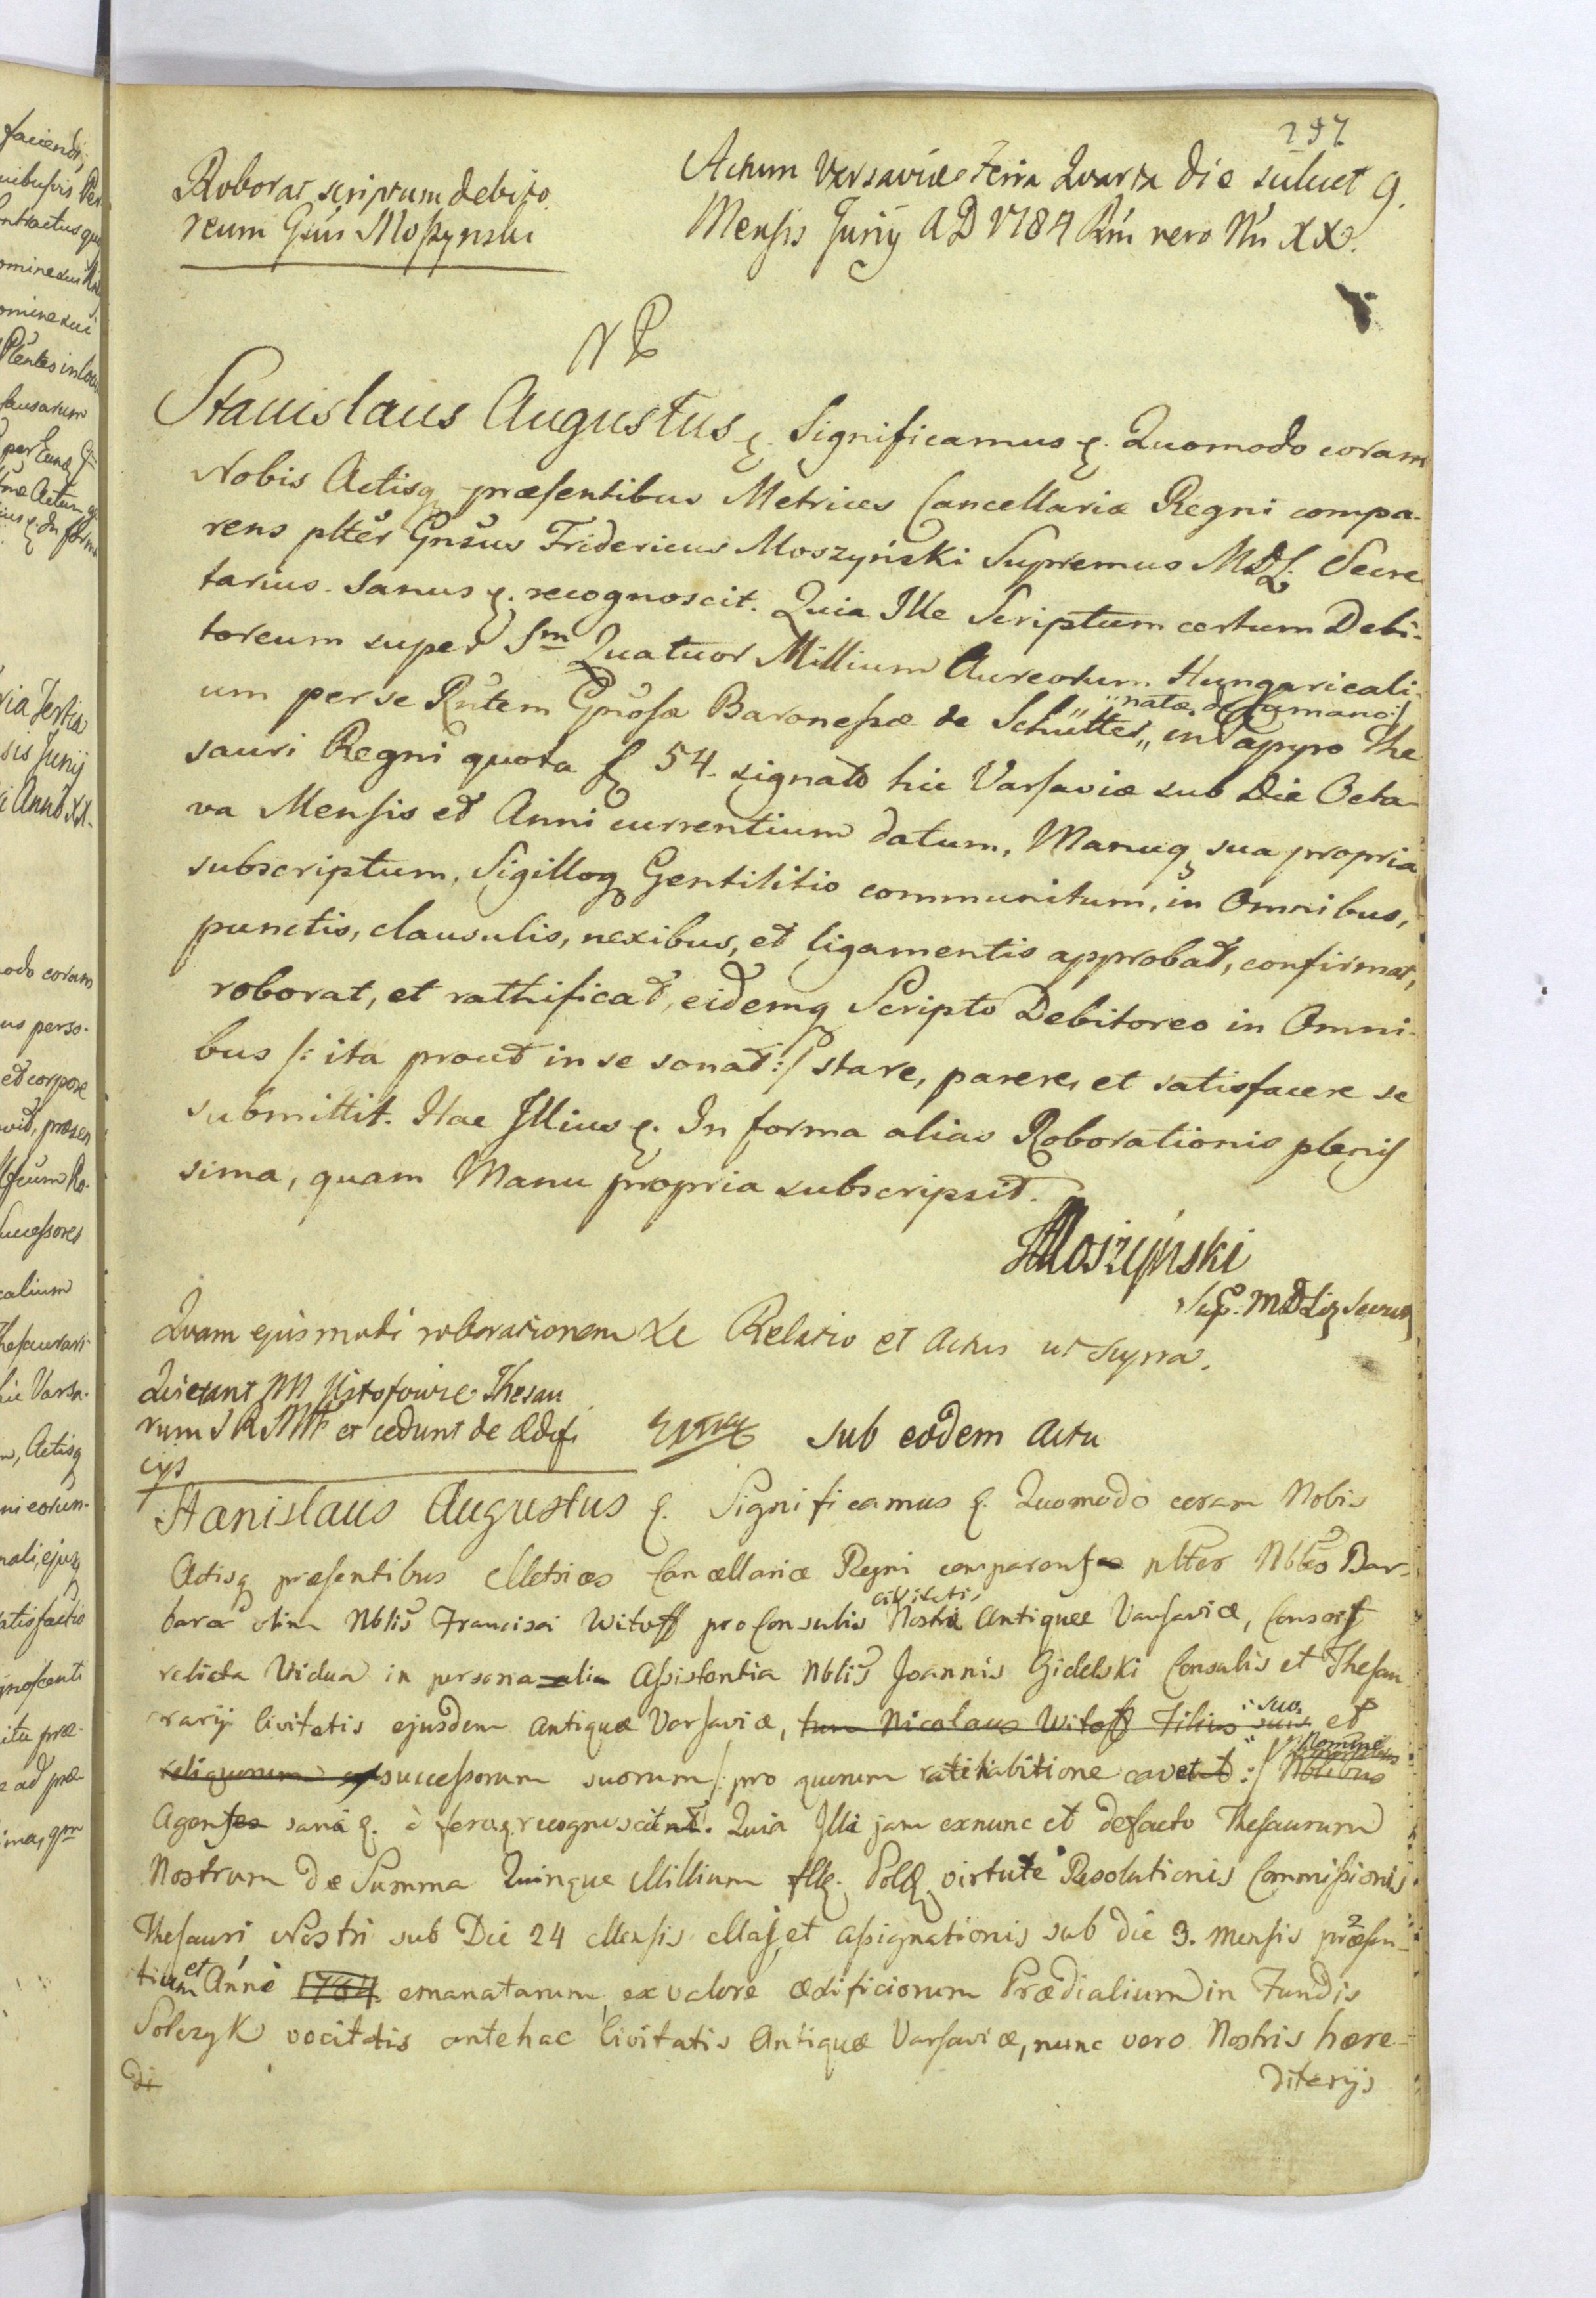 faciendi,
ominesui
omine sui
Plentes in loco
causarum
ria Tertia
sis Junij
i Anno XX.
odo coram
us perso-
et corpore
vid, præsen
Successores
calium
Thesaurari
hic Varsa-
, Actisq
ni eorun-
nali, ejusq
atisfactio
gnoscenti
ita præ-
e ad præ
ima, qm
297
Roborat scriptum debito
reum Gsus Moszynski
Actum Varsaviæ Feria Quarta die scilicet 9.
Mensis Junij AD 1784 Rni vero Nri XX.
NP
Stanislaus Augustus ę. Significamus ę. Quomodo coram
Nobis Actisq præsentibus Metrices Cancellariæ Regni compa-
rens plter Gnsus Fridericus Moszyński Supremus MDL. Secre
tarius. Sanus ę. recognoscit. Quia Ille Scriptum certum Debi-
toreum super Sm Quatuor Millium Aureorum Hungaricali-
um per se Rntem Gnosæ Baronessæ de Schütter,, natæ de Gumano:/ in Papyro The
sauri Regni quota f 54. signato hic Varsaviæ sub Die Octa
va Mensis et Anni currentium datum, Manuq sua propria
subscriptum, Sigilloq Gentilitio communitum, in Omnibus,
punctis, clausulis, nexibus, et ligamentis approbat, confirmat,
roborat, et rathificat, eidemq Scripto Debitoreo in Omni-
bus /: ita prout in se sonat :/ stare, parere, et satisfacere se
submittit. Hac Illius ę. In forma alias Roborationis pleniss
sima, quam Manu propria subscripsit.
FMoszyński
Sup. MDLig Secret
Quam ejusmodi roborationem Le Relatio et Actus ut supra.
Quietant Thesau
rum SRMtis et cedunt de Ædifi
cijs
sub eodem Actu
Stanislaus Augustus ę. Significamus ę. Quomodo coram Nobis
Actisq præsentibus Metrices Cancellariæ Regni comparens plter Nblis Bar-
bara olim Nblis Francisci Witoff proConsulis civitatis Nostræ Antiquæ Varsaviæ, Consors
relicta Vidua in personali Assistentia Nblis Joannis Gidelski Consulis et Thesau
rarij Civitatis ejusdem Antiquæ Varsaviæ, tum Nicolaus Witoff Filius suis suo et
reliquorum successorum suorum /: pro quorum ratihabitione cavet :/ Nomine
Agens sana ę. recognoscit. Quia Illa jam exnunc et defacto Thesaurum
Nostrum de Summa Quinque Millium flę. Polę virtute Resolutionis Commissionis
Thesauri Nostri sub Die 24 Mensis Maj et assignationis sub die 3. mensis præsen-
tium et Anni 1784. emanatarum, ex valore ædificiorum Prædialium in Fundis
Solczyk vocitatis antehac Civitatis Antiquæ Varsaviæ, nunc vero Nostris hære-
di
ditarijs